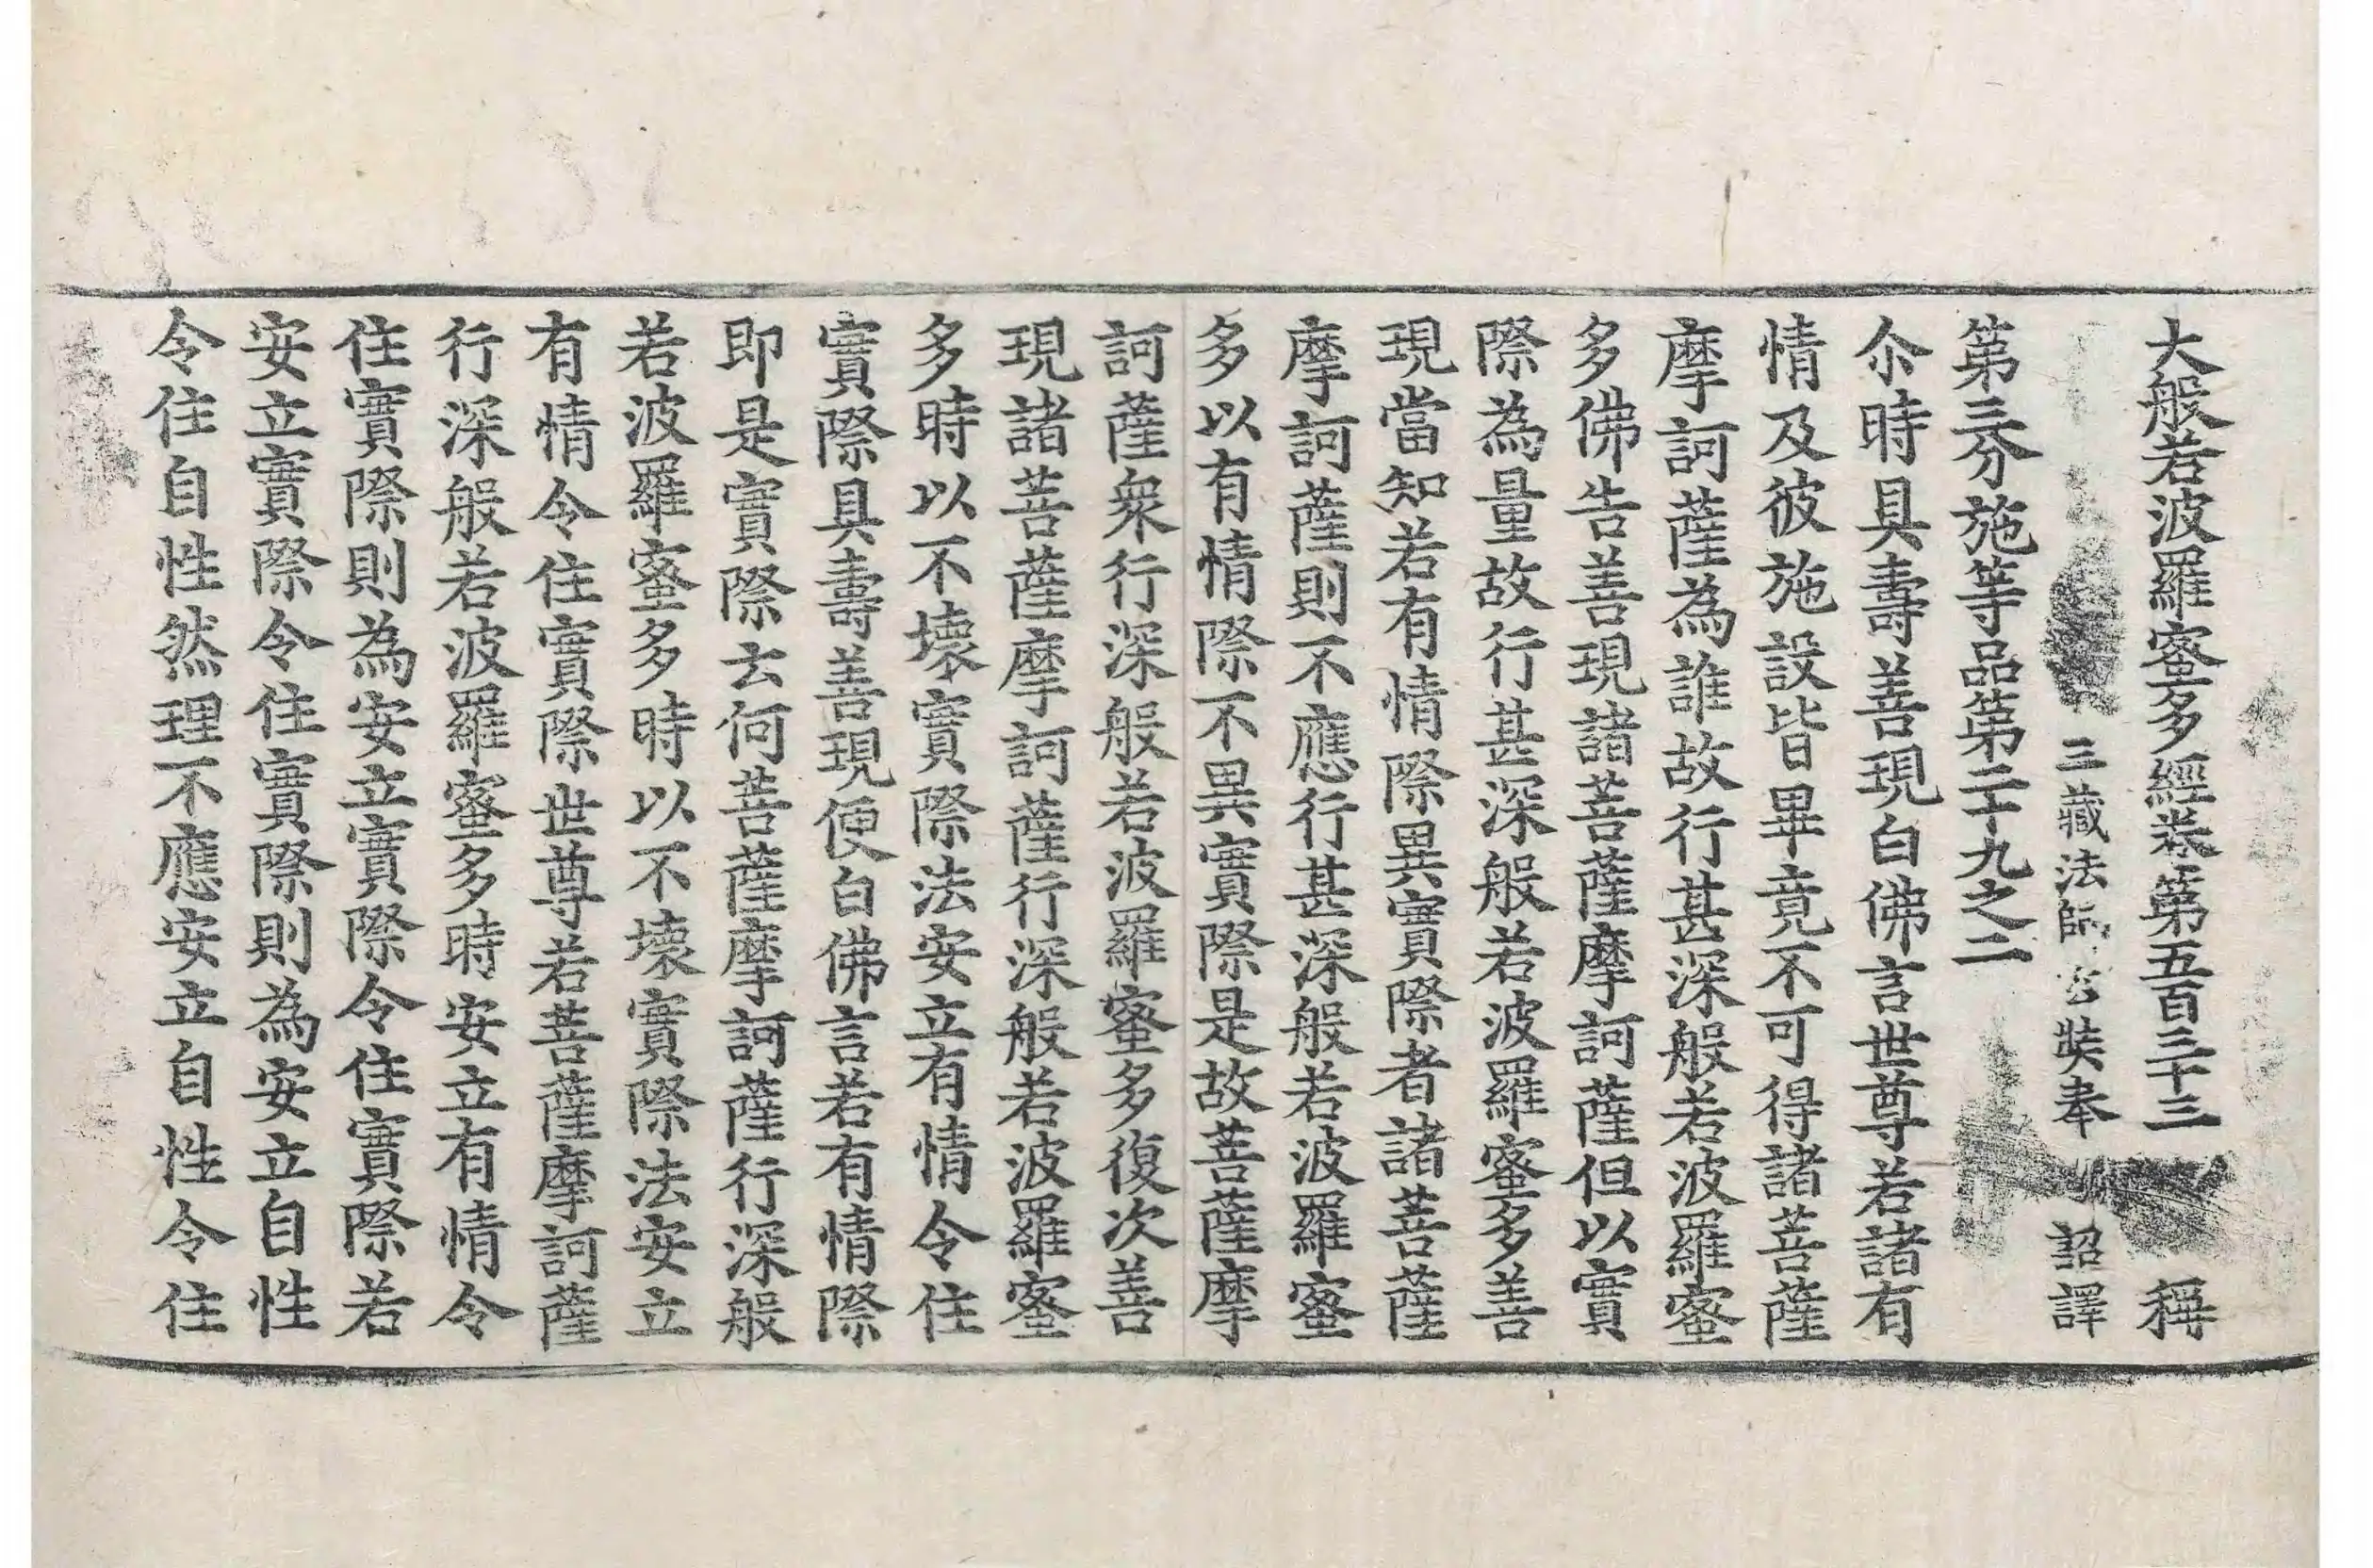 大般若波羅蜜多經卷第五百三十三 稱
三藏法師玄奘奉 詔譯
第三分施等品第二十九之二
尒時具壽善現白佛言世尊若諸有
情及彼施設皆畢竟不可得諸菩薩
摩訶薩為誰故行甚深般若波羅蜜
多佛告善現諸菩薩摩訶薩但以實
際為量故行甚深般若波羅蜜多善
現當知若有情際異實際者諸菩薩
摩訶薩則不應行甚深般若波羅蜜
多以有情際不異實際是故菩薩摩
訶薩衆行深般若波羅蜜多復次善
現諸菩薩摩訶薩行深般若波羅蜜
多時以不壞實際法安立有情令住
實際具壽善現便白佛言若有情際
即是實際云何菩薩摩訶薩行深般
若波羅蜜多時以不壞實際法安立
有情令住實際世尊若菩薩摩訶薩
行深般若波羅蜜多時安立有情令
住實際則為安立實際令住實際若
安立實際令住實際則為安立自性
令住自性然理不應安立自性令住